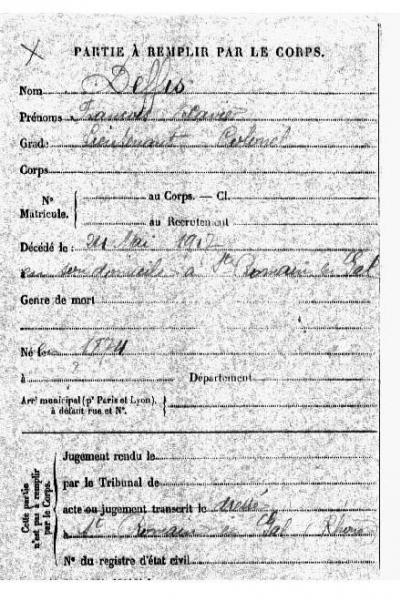 PARTIE À REMPLIR PAR LE CORPS.
Nom Deffis
Prénoms François Xavier
Grade Lieutenant Colonel
Corps
N° Matricule.
au Corps. — Cl.
au Recrutement
Décédé le : 24 Mai 1917
en son domicile à St Romain en Gal
Genre de mort
Né le 18
à ? Département
Arrt municipal (pr Paris et Lyon), à défaut rue et N°.
Cette partie n'est pas à remplir par le Corps.
Jugement rendu le
par le Tribunal de
acte ou jugement transcrit le
à St Romain en Gal (Rhône)
N° du registre d'état civil